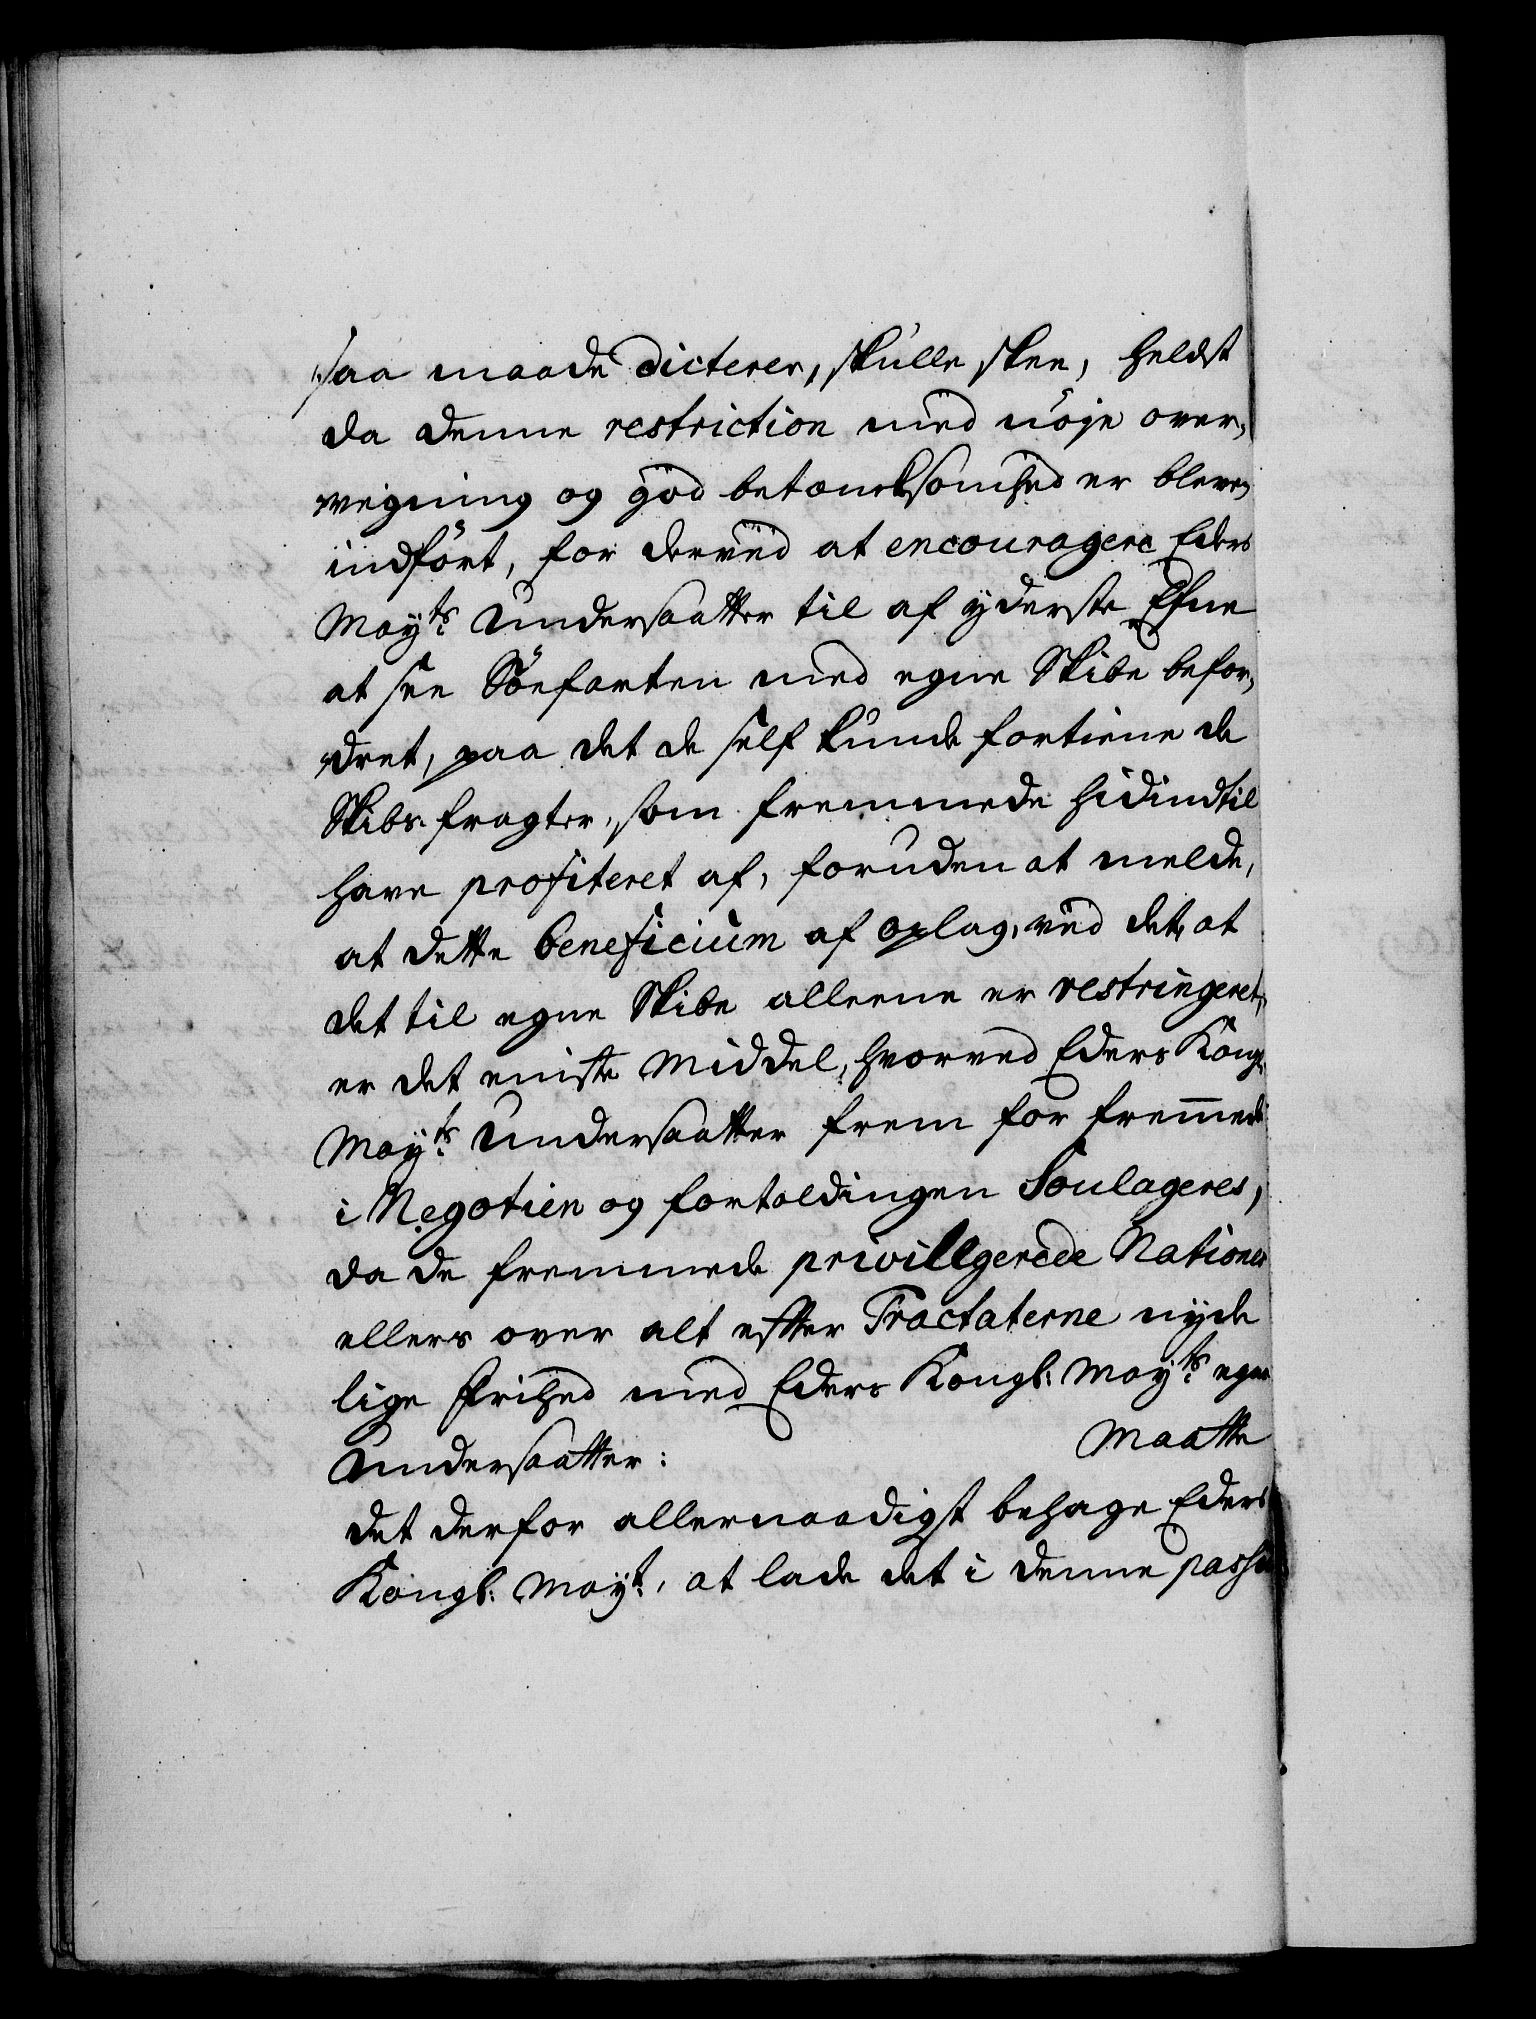 saa maade dicterer, skulle skee, heldst
da denne restriction med nøje over-
vegning og god betænksomhed er bleven
indført, for derved at encouragere Eders
Mayts. Undersaatter til af yderste Efne
at see Söefarten med egne Skibe befor-
dret, paa det de self kunde fortiene de
Skibs-fragter, som fremmede hidindtil
have profiteret af, foruden at melde,
at dette beneficium af oplag, ved det, at
det til egne Skibe alleene er restringeret,
er det eniste Middel, hvorved Eders Kongl.
Mayts. Undersaatter frem for fremmede
i Negotien og fortoldingen Soulageres,
da de fremmede privillgerede Nationer
ellers over alt efter Tractaterne nyde
lige Frihed med Eders Kongl: Mayts. egne
Undersaatter: Maatte
det derfor allernaadigst behage Eders
Kongl: Mayt. at lade det i denne